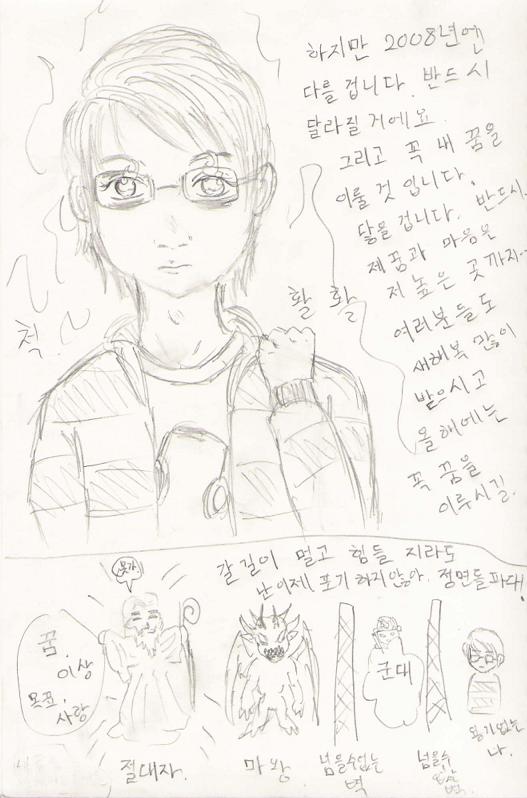 하지만 2008년엔
다를 겁니다. 반드시
달라질 거에요.
그리고 꼭 내 꿈을
이룰 것 입니다.
닿을 겁니다. 반드시.
제 꿈과 마음은
저 높은 곳 까지…
여러분들도
새해복 많이
받으시고
올해에는
꼭 꿈을
이루시길.
척.
활 활
갈 길이 멀고 힘들 지라도
난 이제 포기 하지 않아. 정면돌파다.
못가.
꿈.
이상
목표.
사랑
군대
절대자.
마왕
넘을수없는
벽
넘을수
없는
벽.
용기없는
나.